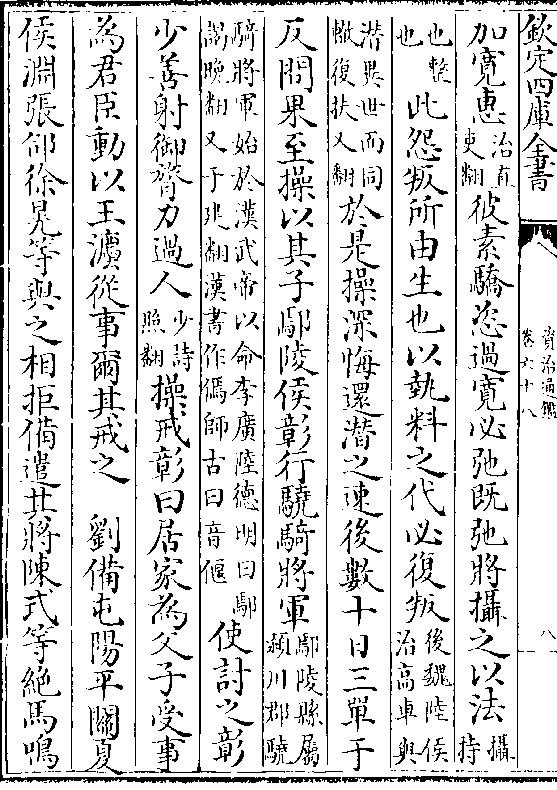 欽定四庫全書
資治通鑑
卷六十八
八
加寬惠治直
吏翻彼素驕恣過寛必弛既弛將攝之以法攝
持
也整
也此怨叛所由生也以埶料之代必復叛後魏陸俟
治高車與
潜異世而同
轍復扶又翻於是操深悔還潜之速後數十日三單于
反問果至操以其子鄢陵侯彰行驍騎將軍鄢陵縣屬
潁川郡驍
騎將軍始於漢武帝以命李廣陸德明曰鄢
謁晚翻又于建翻漢書作傿師古曰音偃使討之彰
少善射御膂力過人少詩
照翻操戒彰曰居家為父子受事
為君臣動以王灋從事爾其戒之　劉備屯陽平關夏
侯淵張郃徐晃等與之相拒備遣其將陳式等絶馬鳴